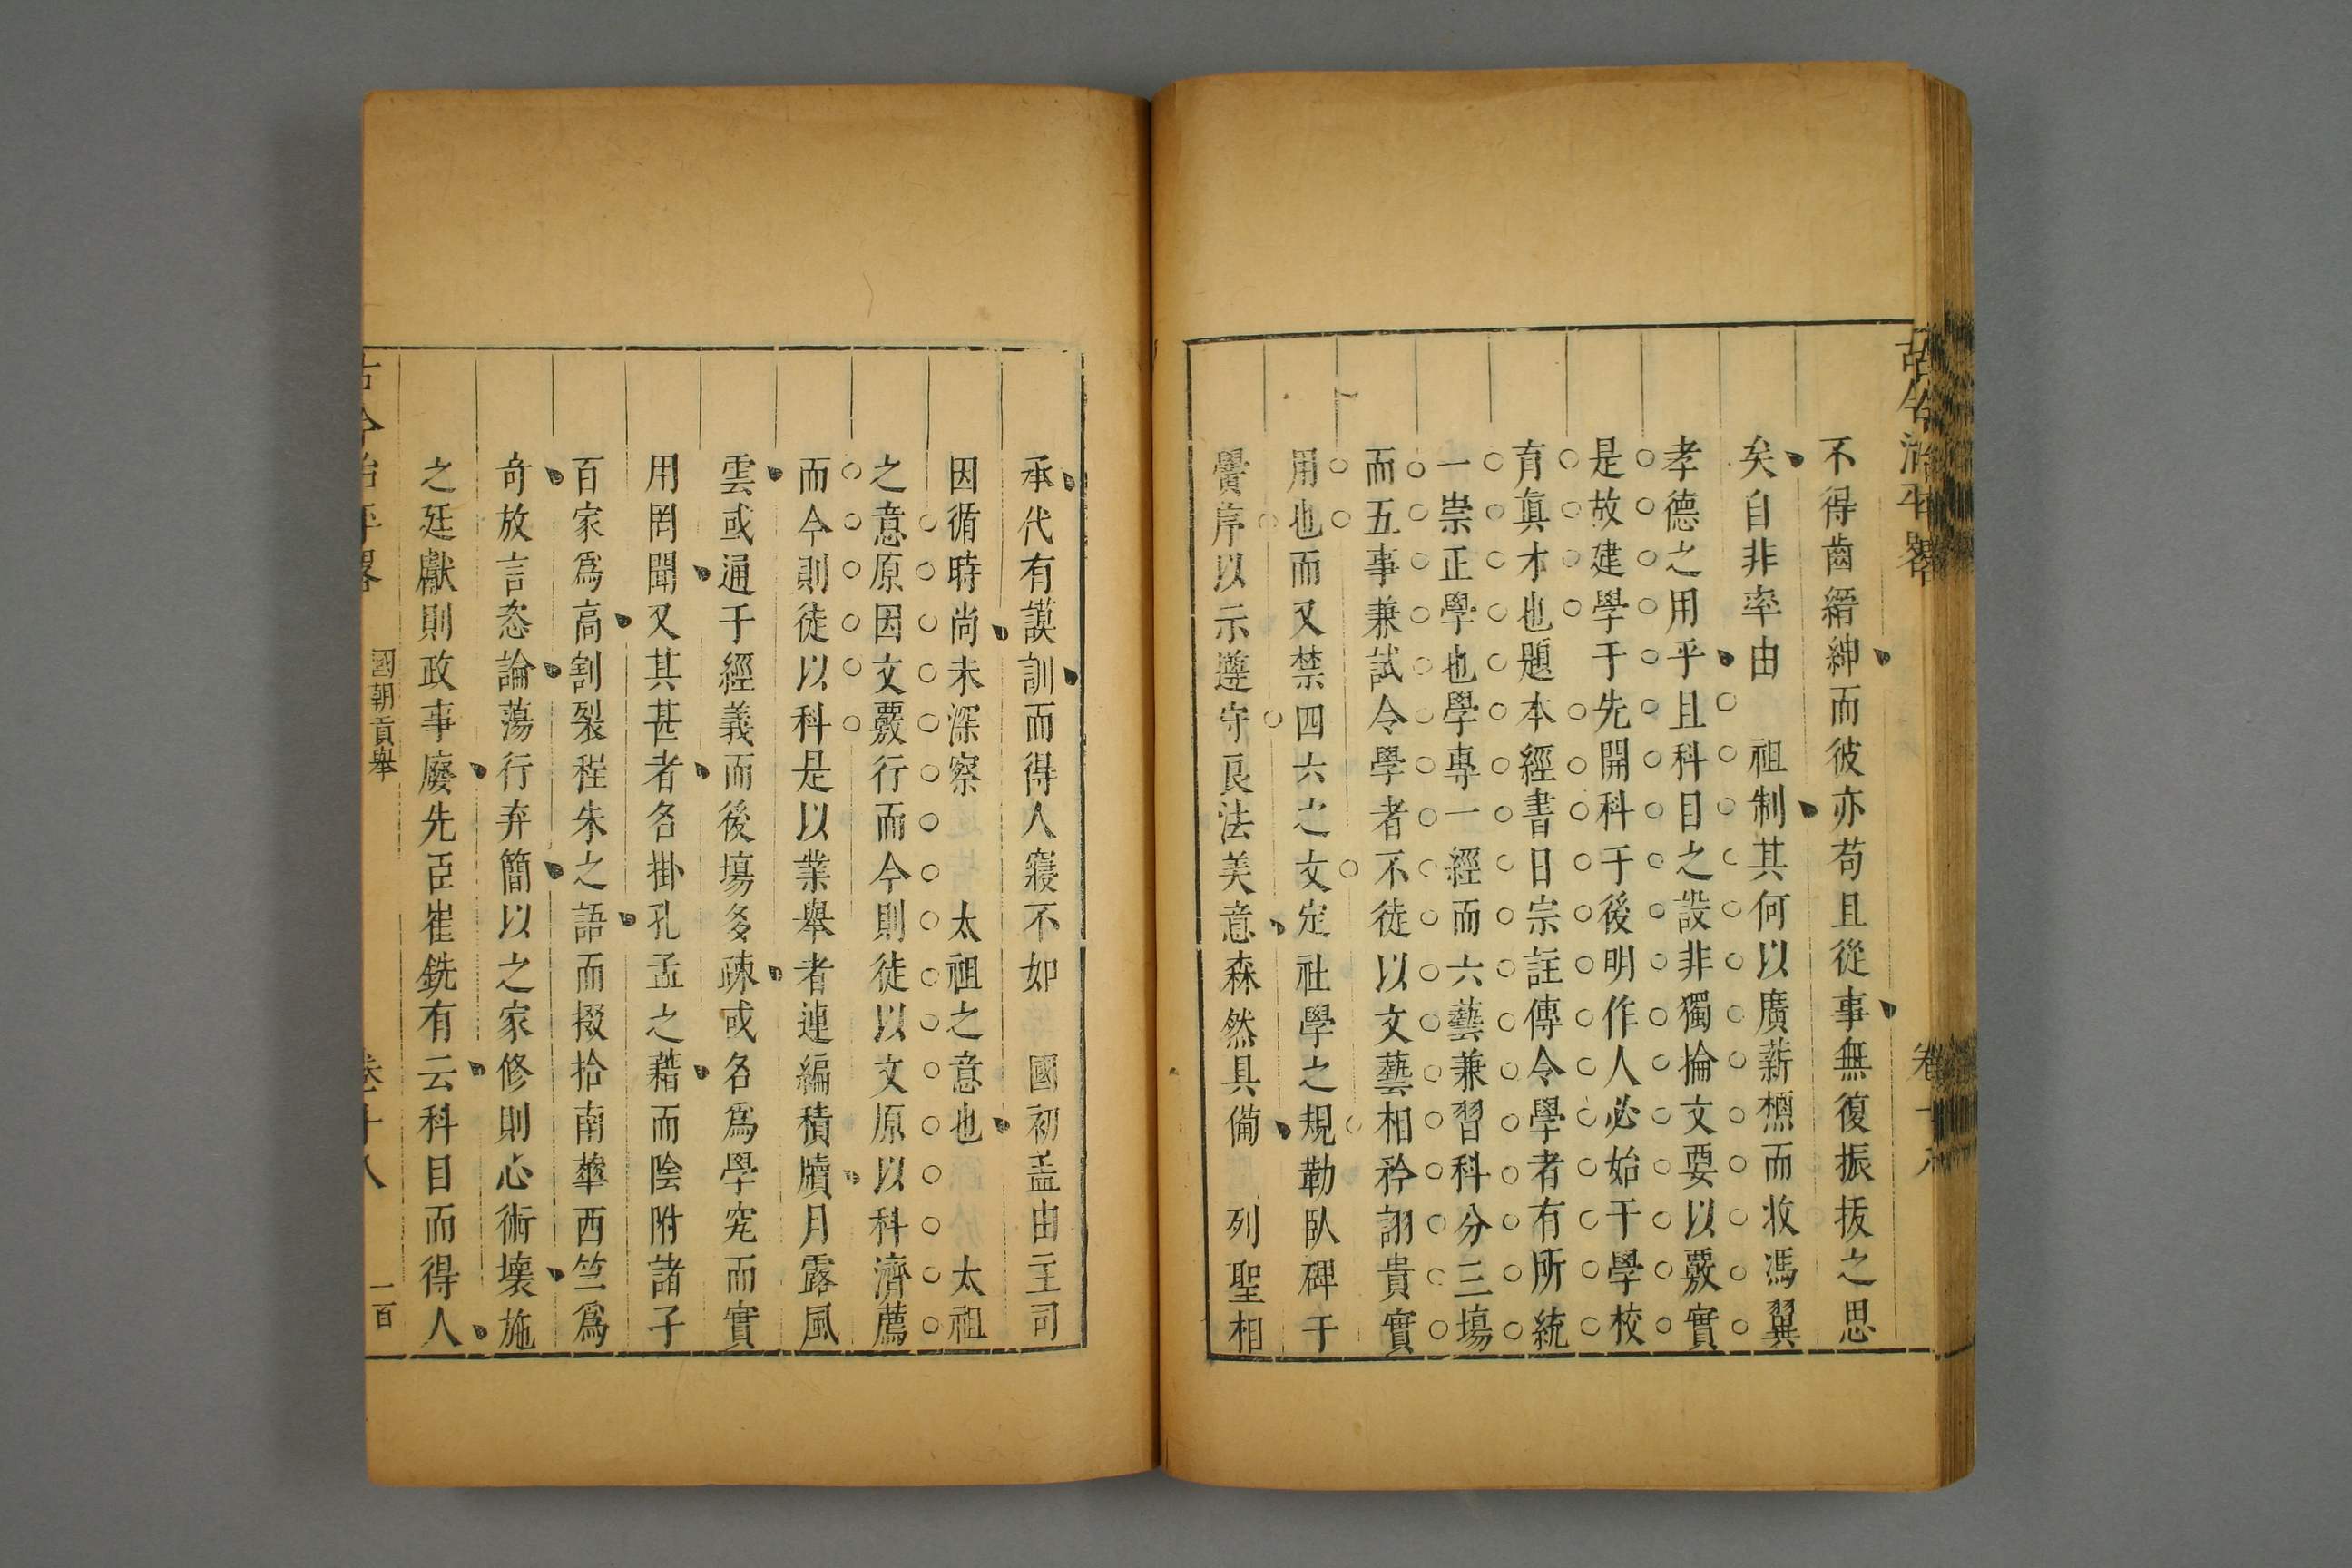 古今治平畧
卷十八
不得齒縉紳而彼亦苟且從事無復振拔之思
矣自非率由 祖制其何以廣薪槱而收馮翼
孝德之用乎且科目之設非獨掄文要以覈實
是故建學于先開科于後明作人必始于學校
有眞才也題本經書日宗註傳令學者有所統
一崇正學也學專一經而六藝兼習科分三塲
而五事兼試令學者不徒以文藝相矜詡貴實
用也而又禁四六之文定社學之規勒臥碑于
黌序以示遵守良法美意森然具備 列聖相
承代有謨訓而得人寖不如 國初盖由主司
因循時尚未深察 太祖之意也 太祖
之意原因文覈行而今則徒以文原以科濟薦
而今則徒以科是以業舉者連編積牘月露風
雲或通于經義而後塲多疎或名爲學究而實
用罔聞又其甚者名掛孔孟之藉而陰附諸子
百家爲高割裂程朱之語而掇拾南華西竺爲
奇放言恣論蕩行弃簡以之家修則心術壞施
之廷獻則政事廢先臣崔銑有云科目而得人
古今治平畧
國朝貢舉
卷十八
一百